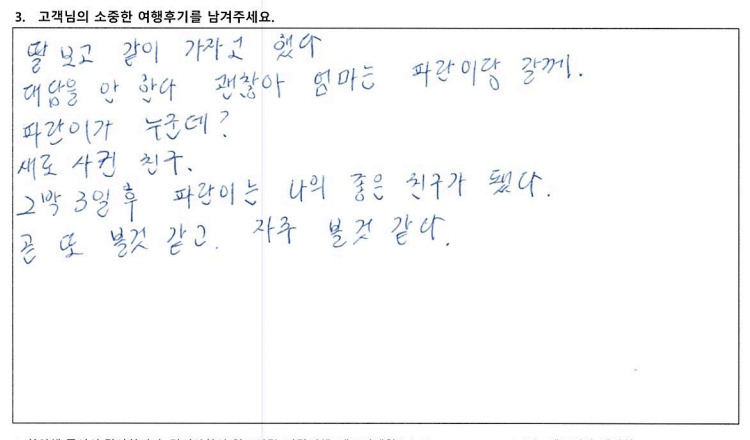 3. 고객님의 소중한 여행후기를 남겨주세요.
딸 보고 같이 가자고 했다
대답을 안 한다 괜찮아 엄마는 파란이랑 갈께.
파란이가 누군데?
새로 사귄 친구.
2박 3일 후 파란이는 나의 좋은 친구가 됐다.
곧 또 볼것 같고. 자주 볼것 같다.